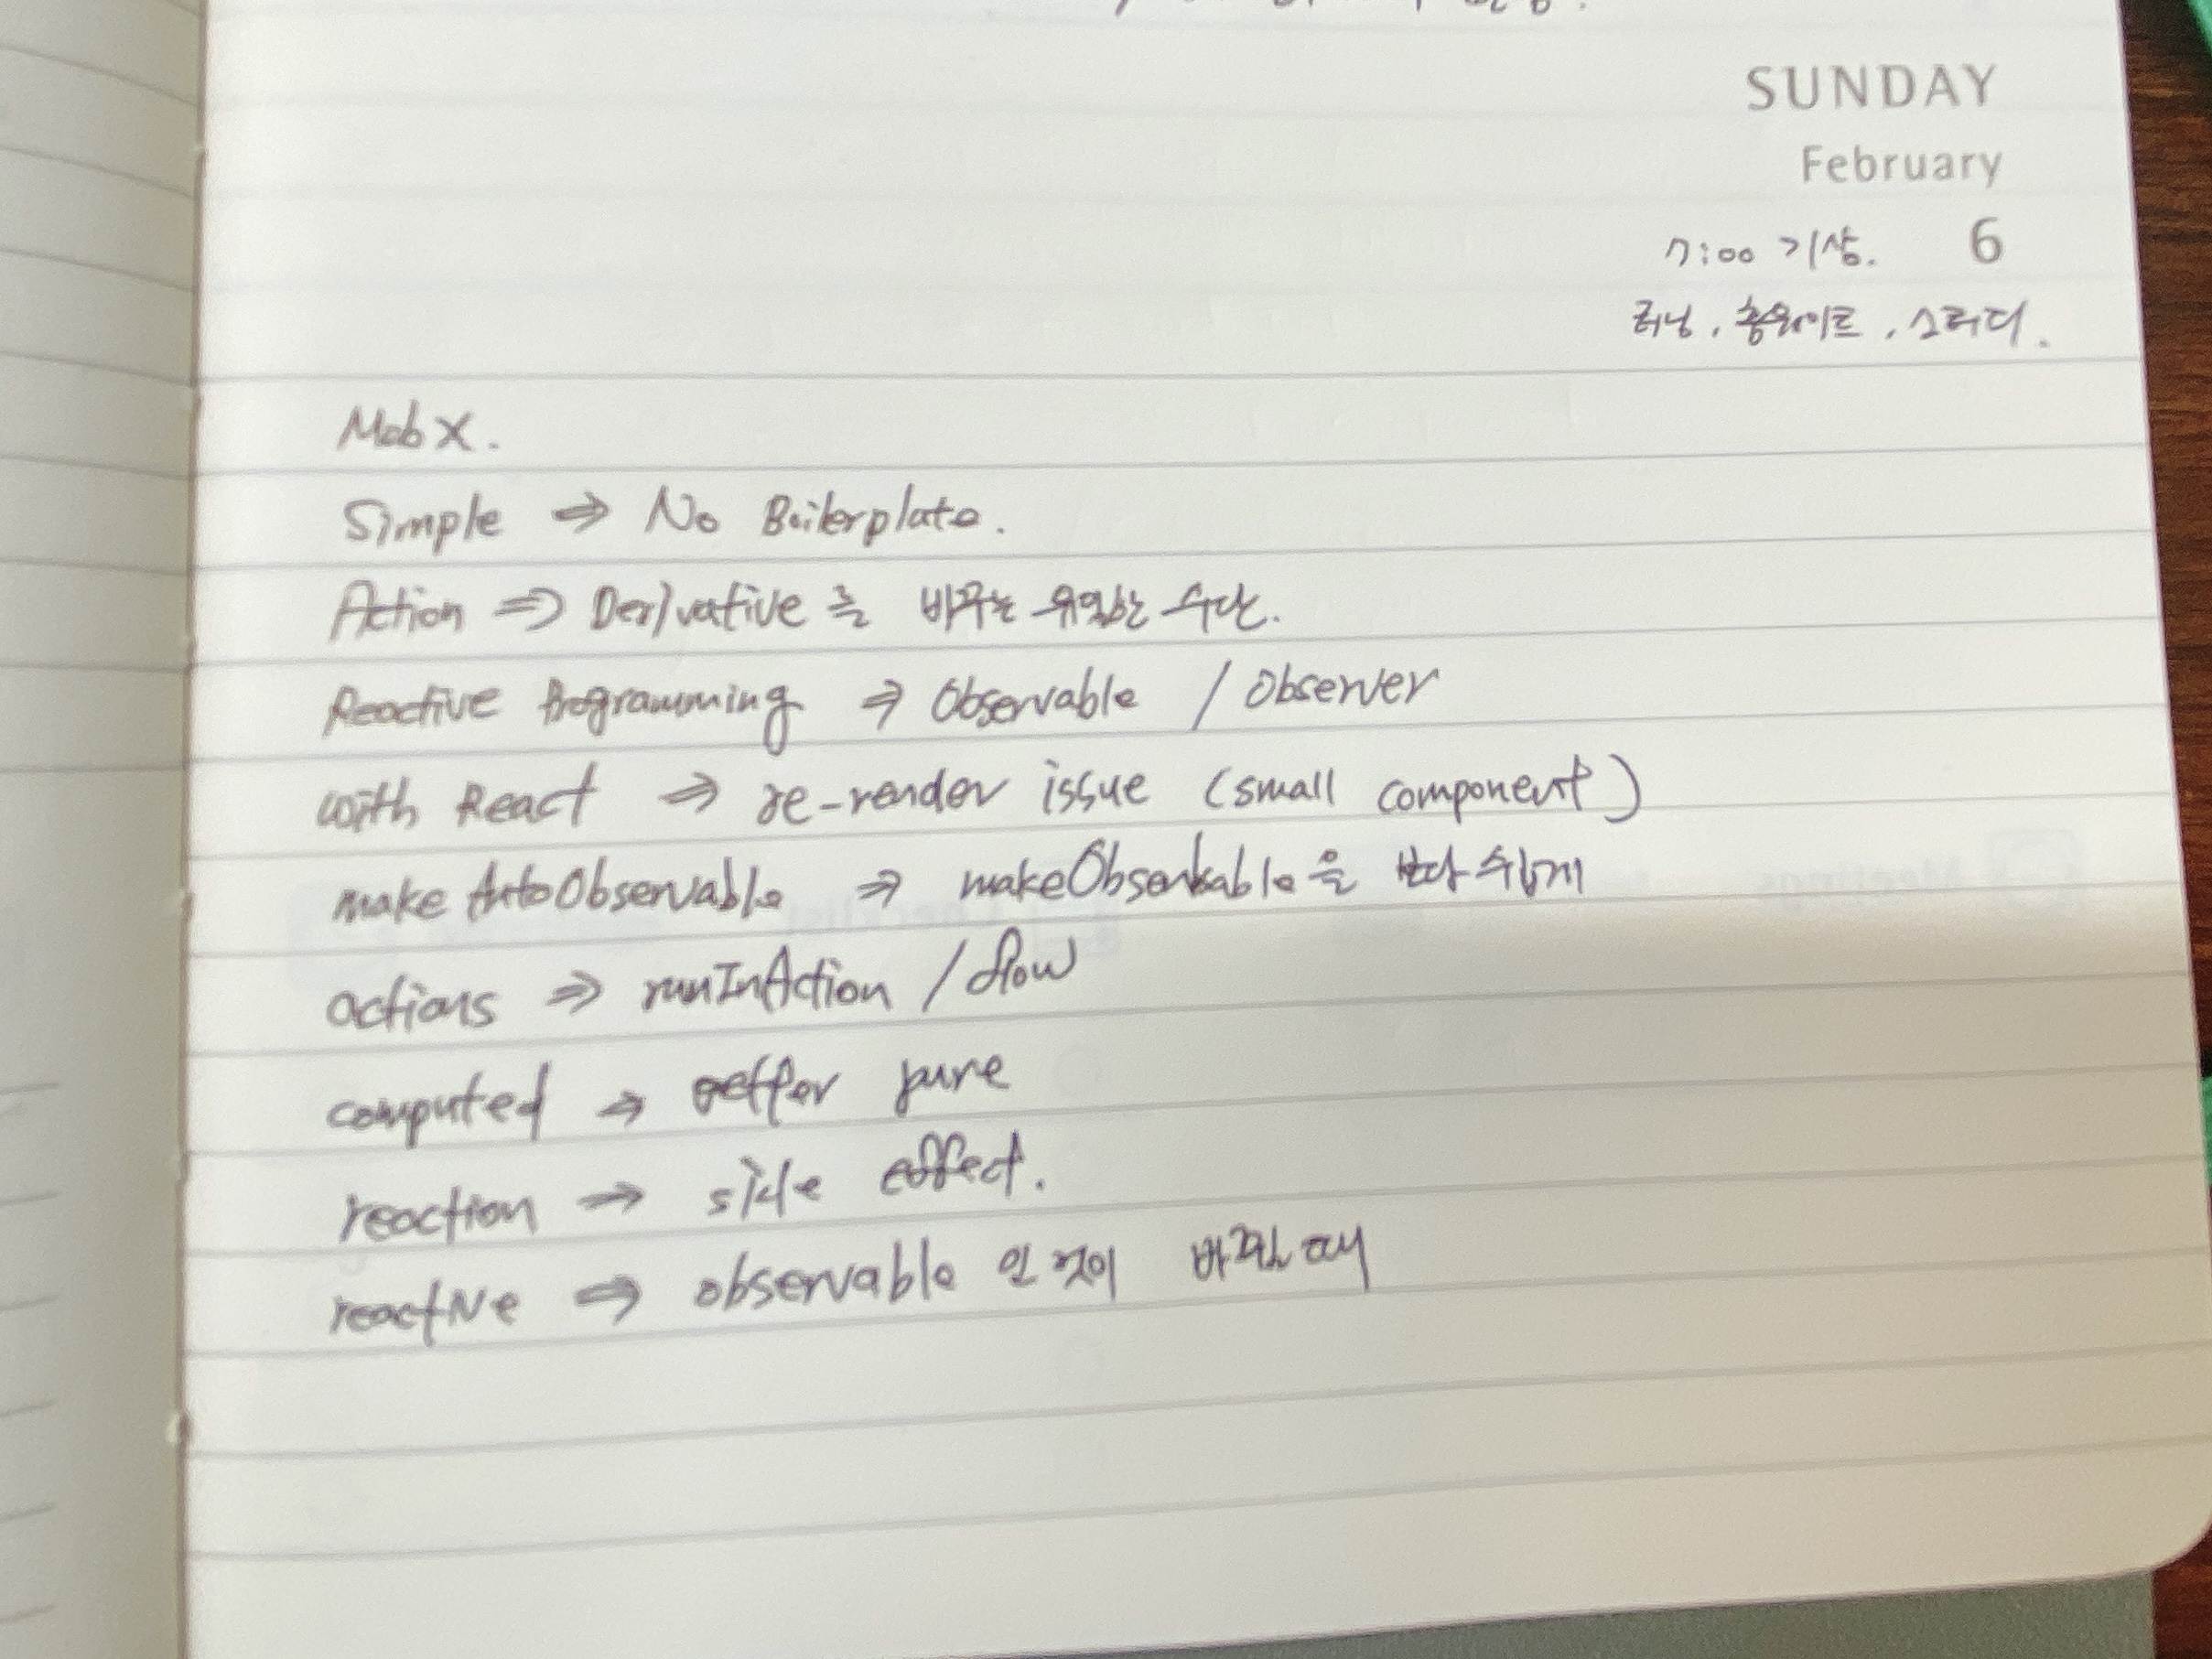 SUNDAY
February
7:00 기상. 6
러닝, 홈웨이트, 스터디.
MobX.
Simple ⇒ No Boilerplate.
Action ⇒ Derivative를 바꾸는 유일한 수단.
Reactive Programming ⇒ Observable / Observer
with React ⇒ re-render issue (small component)
make AutoObservable ⇒ makeObservable을 보다 쉽게
actions ⇒ runInAction / flow
computed ⇒ getter pure
reaction ⇒ side effect.
reactive ⇒ observable 인 것이 바뀌는 때